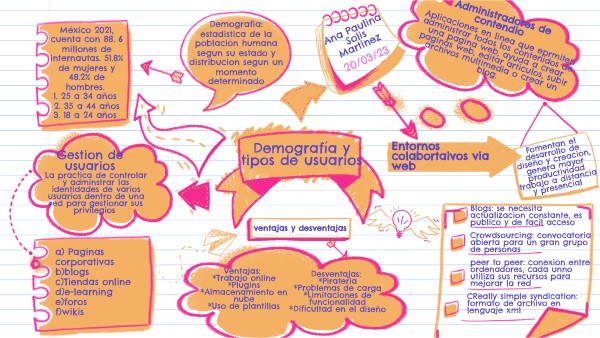 México 2021,
cuenta con 88. 6
millones de
internautas. 51.8%
de mujeres y
48.2% de
hombres.
1. 25 a 34 años
2. 35 a 44 años
3. 18 a 24 años
Demografia:
estadistica de la
población humana
segun su estado y
distribucion segun un
momento
determinado
Ana Paulina
Solis
Martinez
20/03/23
Administradores de
contendio
Aplicaciones en linea que epmiten
administrar todos los contenidos de
una pagina web, ayuda a crear
paginas web, editar articulos, subir
archivos multimedia o crear un
blog.
Gestion de
usuarios
La practica de controlar
y adminstrar las
identidades de varios
usuarios dentro de una
red para gestionar sus
privilegios
Demografía y
tipos de usuarios
Entornos
colabortaivos via
web
Fomentan el
desarrollo de
diseño y creacion,
genera mayor
productividad
trabajo a distancia
y presencial
ventajas y desventajas
a) Paginas
corporativas
b)blogs
c)Tiendas online
d)e-learning
e)foros
f)wikis
Ventajas:
*Trabajo online
*Plugins
*Almacenamiento en
nube
*Uso de plantillas
Desventajas:
*Pirateria
*Problemas de carga
*Limitaciones de
funcionalidad
*Dificultad en el diseño
Blogs: se necesita
actualizacion constante, es
publico y de facil acceso
Crowdsourcing: convocatoria
abierta para un gran grupo
de personas
peer to peer: conexión entre
ordenadores, cada unno
utiliza sus recursos para
mejorar la red
CReally simple syndication:
formato de archivo en
lenguaje xml